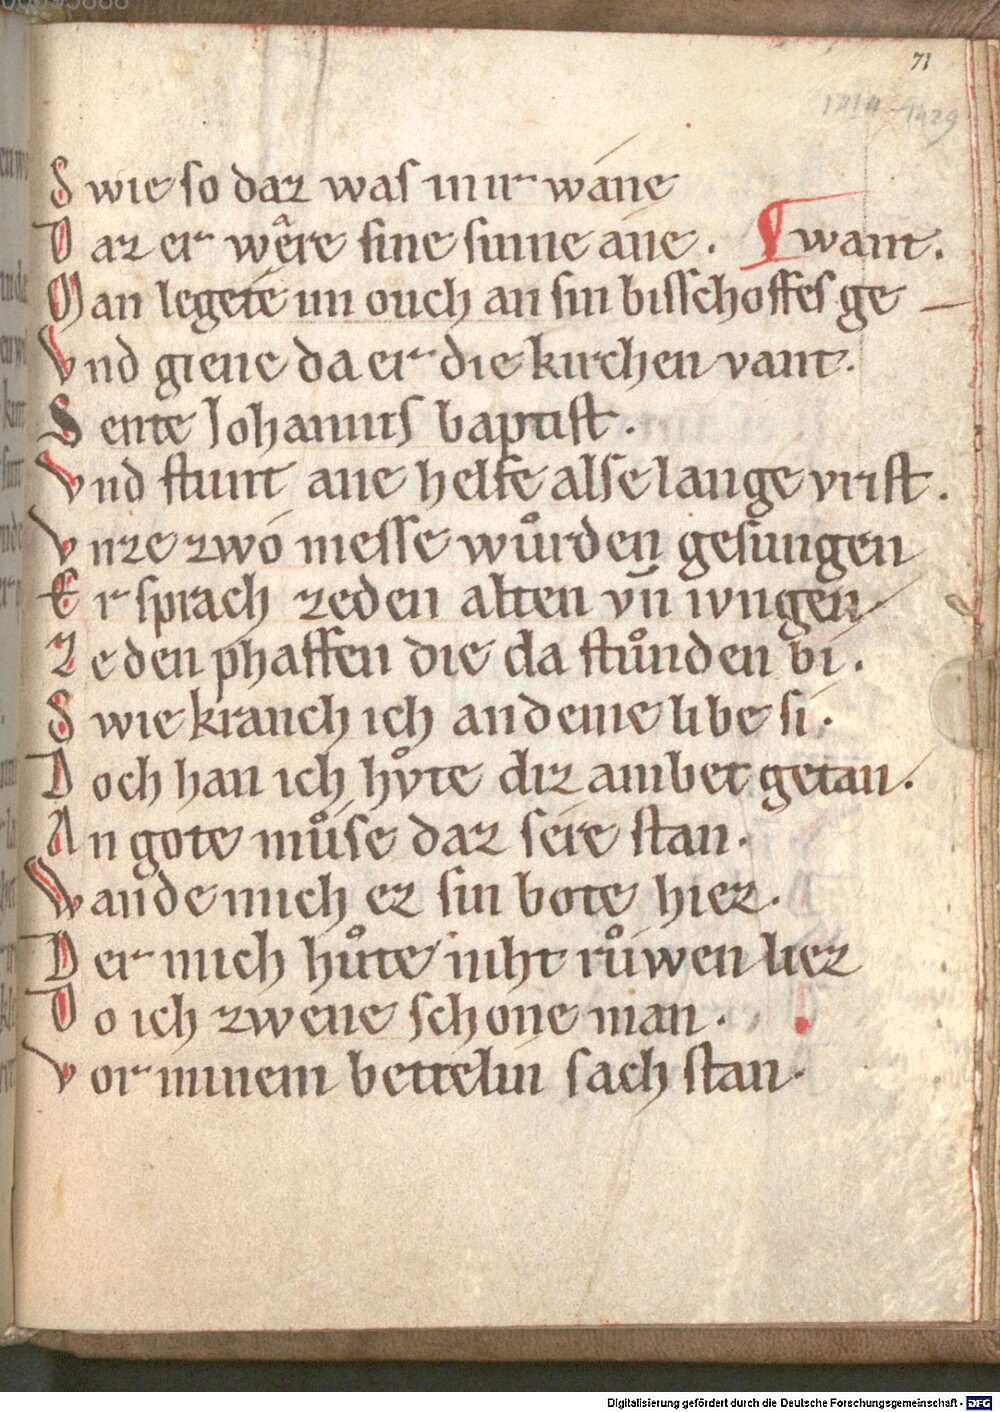 71
1414-1429
Swie so daz was inir wane
Daz er wêre sine sinne ane. want.
Man legete im ouch an sin bisschoffes ge –
Vnd gienc da er die kirchen vant.
Sente Johannis baptist.
Vnd stunt ane helfe alse lange vrist.
Vnze zwo messe wůrden gesungen
Er sprach zeden alten vn̄ iungen
Zeden phaffen die da stůnden bi.
Swie kranch ich an deme libe si.
Doch han ich hv̊te diz ambet getan.
An gote mův́se daz sere stan.
Wande mich ez sin bote hiez.
Der mich hůte niht růwen liez
Do ich zwene schone man.
Vor minem bettelin sach stan.
Digitalisierung gefördert durch die Deutsche Forschungsgemeinschaft - DFG